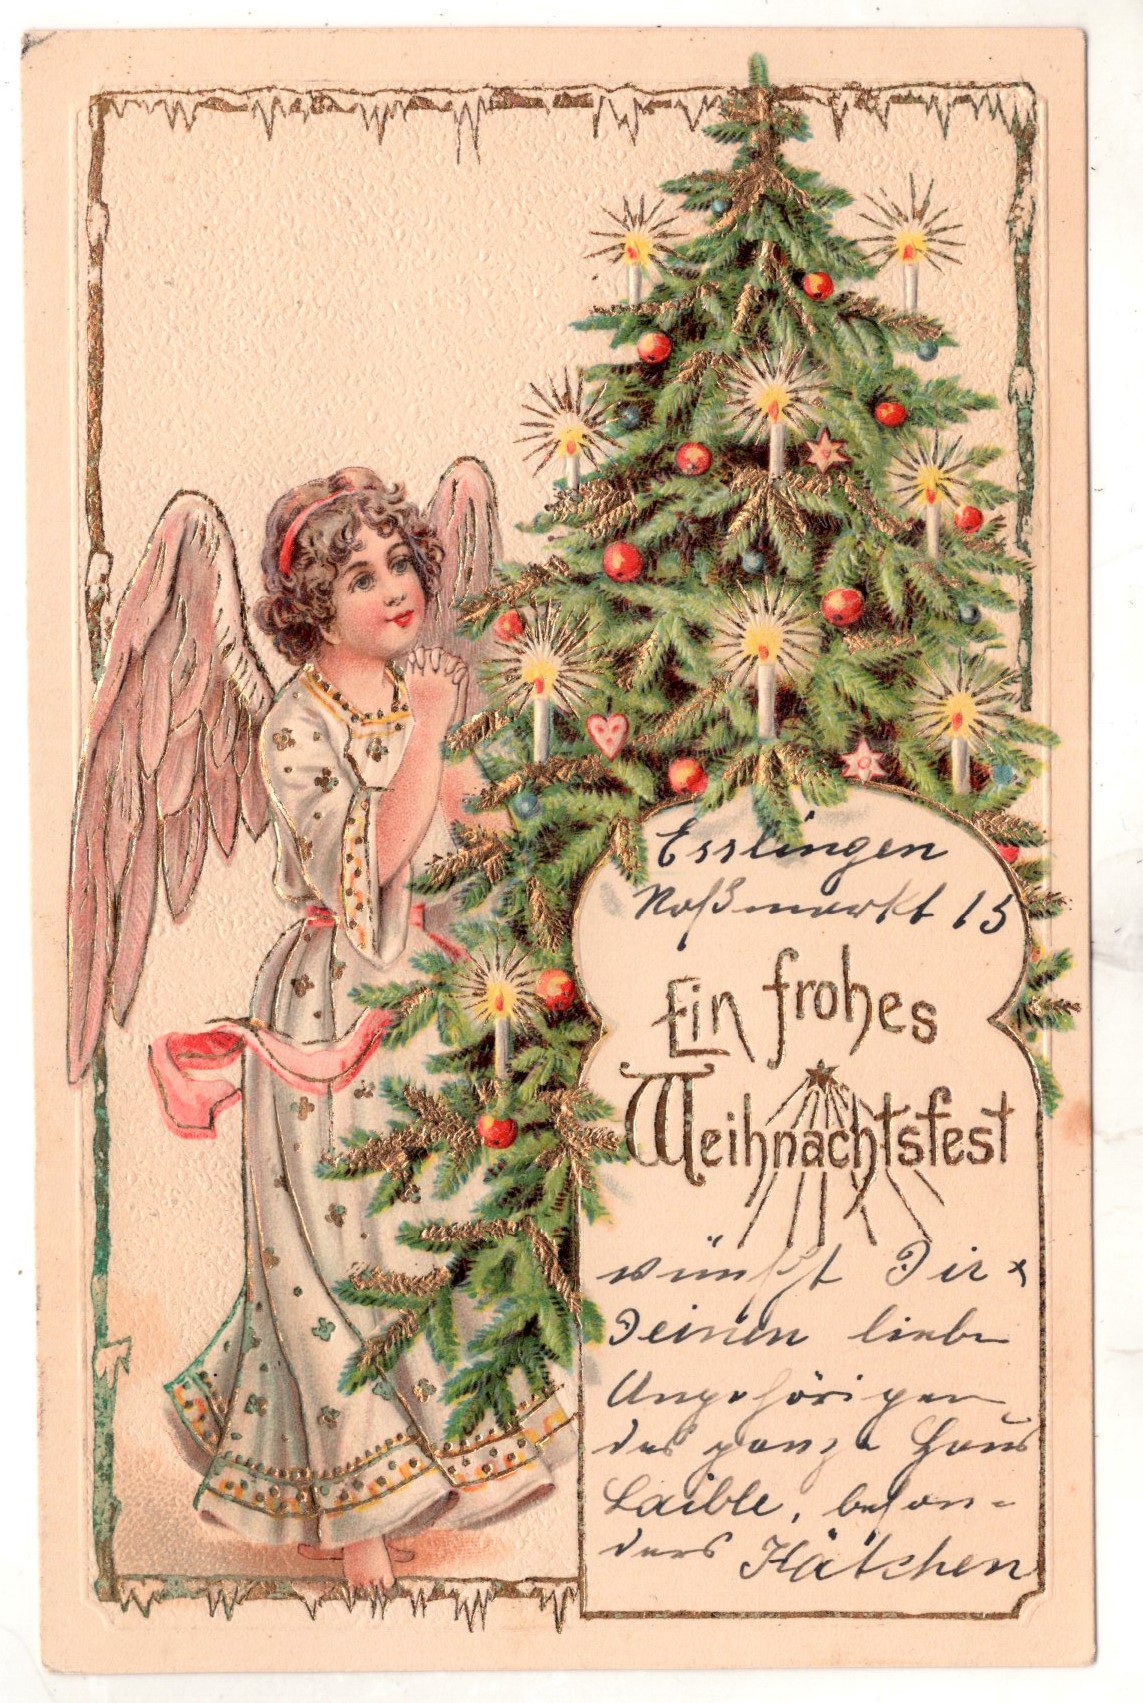 Esslingen
Roßmarkt 15
Ein frohes
Weihnachtsfest
wünscht Dir &
Deinen lieben
Angehörigen
das ganze Haus
Laible, beson-
ders Kätchen